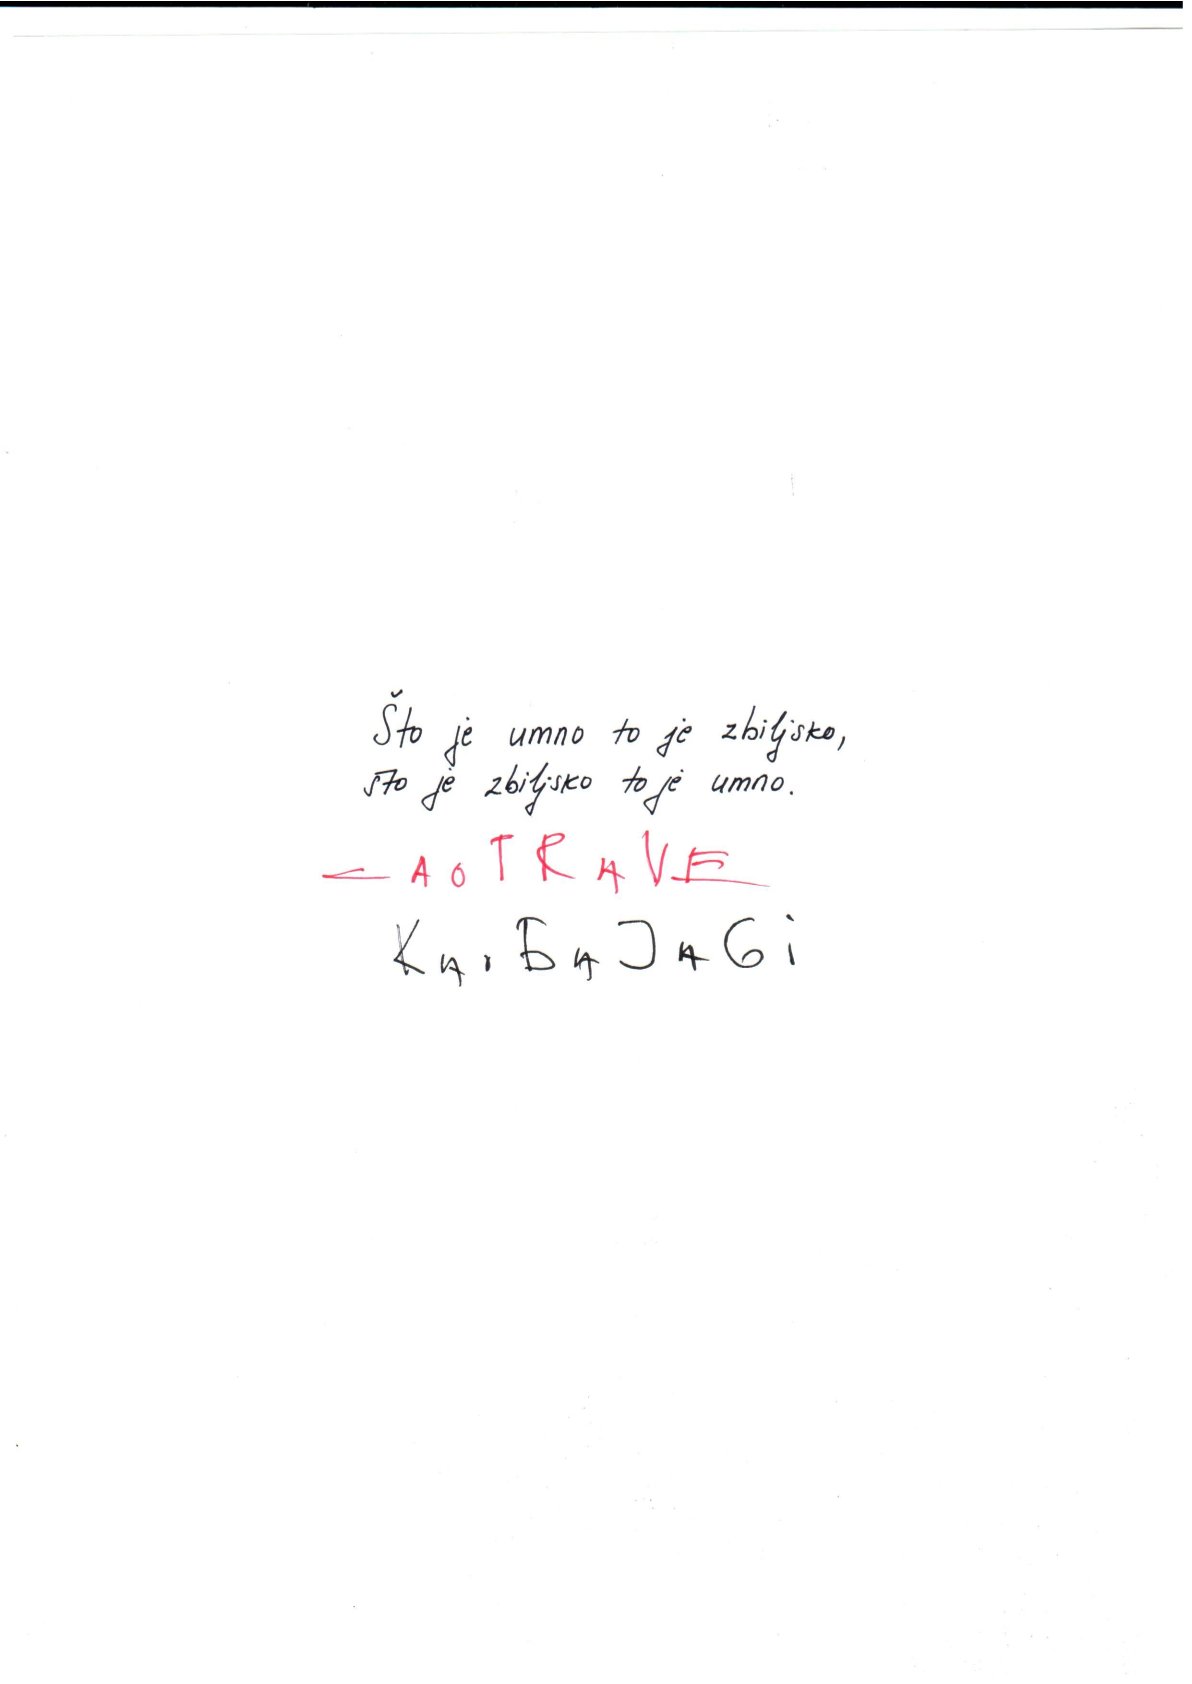 Što je umno to je zbiljsko,
što je zbiljsko to je umno.
AOTRAVE
KA.БAJAGi